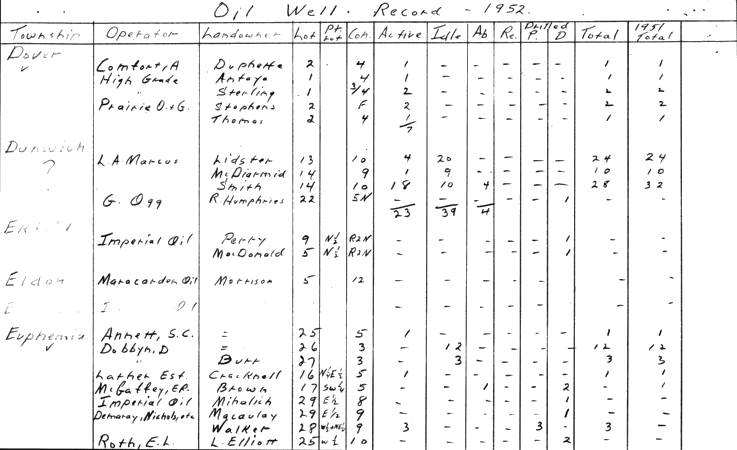 Oil Well. Record - 1952.
Township Operator Landowner Lot Pt. Lot Con. Active Idle Ab Re. Drilled P. D Total 1951 Total
Dover
Comfort, A Duphette 2 4 1 - - - - - 1 1
High Grade Antaya 1 4 1 - - - - - 1 1
" Sterling 1 3/4 2 - - - - - 2 2
Prairie O.+G. Stephens 2 F 2 - - - - - 2 2
Thomas 2 4 1 - - - - - 1 1
7
Dunwich
?
L.A Marcus Lidster 13 10 4 20 - - - - 24 24
McDiarmid 14 9 1 9 - - - - 10 10
Smith 14 10 18 10 4 - - - 28 32
G. Ogg R. Humphries 22 5N - - - - - 1
23 39 4
Imperial Oil Perry 9 N½ R2N - - - - - 1 - -
MacDonald 5 N½ R2N - - - - - 1 - -
Eldon Maracardon Oil Morrison 5 12 - - - - - - -
Euphemia
Annett, S.C. = 25 5 1 - - - - - 1 1
Dobbyn, D = 26 3 - 12 - - - - 12 12
" Burr 27 3 - 3 - - - - 3 3
Lather Est. Cracknell 16 N½E½ 5 1 - - - - - 1 1
McGaffey, E.P. Brown 17 SW¼ 5 - - 1 - - 2 - 1
Imperial Oil Mihalich 29 E½ 8 - - - - - 1 - -
Demaray, Nichols, etc Macaulay 29 E1/2 9 - - - - - 1 - -
Walker 28 9 3 - - - 3 - 3 -
Roth, E.L. L. Elliott 25 W½ 10 - - - - - 2 - -